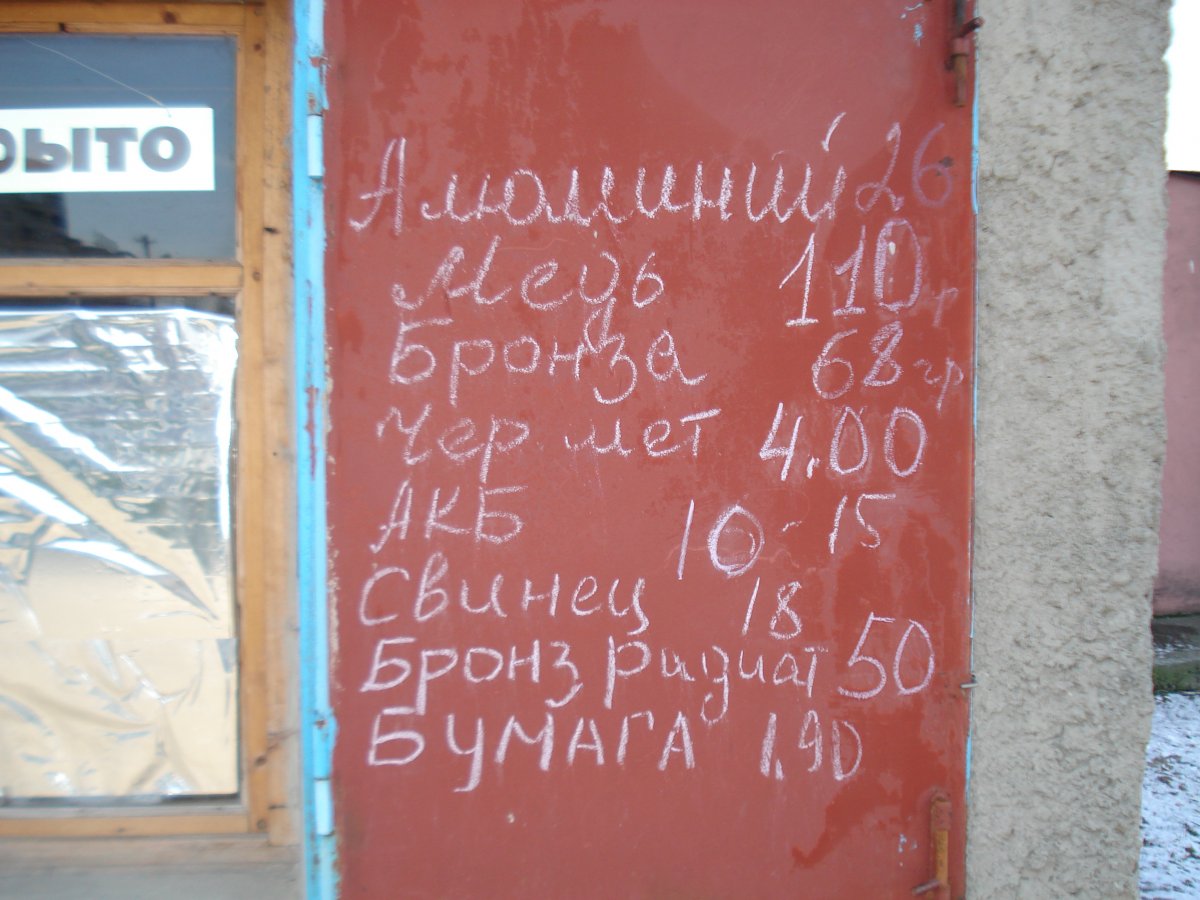 рыто
Алюминий 26
Медь 110 г
Бронза 68 гр
Чер мет 4.00
АКБ 10-15
Свинец 18
Бронз радиат 50
БУМАГА 1.90